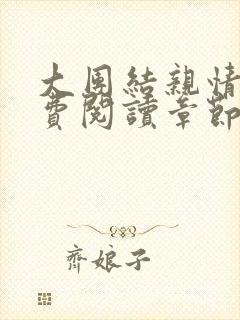 大團結親情
費閱讀章節
齊娘子